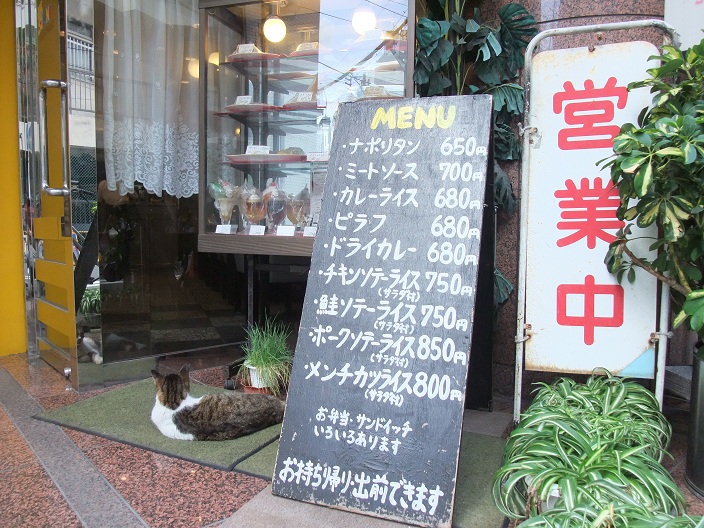 MENU
・ナポリタン 650円
・ミートソース 700円
・カレーライス 680円
・ピラフ 680円
・ドライカレー 680円
・チキンソテーライス 750円
(サラダ付)
・鮭ソテーライス 750円
(サラダ付)
・ポークソテーライス 850円
(サラダ付)
・メンチカツライス 800円
(サラダ付)
お弁当・サンドイッチ
いろいろあります
お持ち帰り・出前できます
営業中